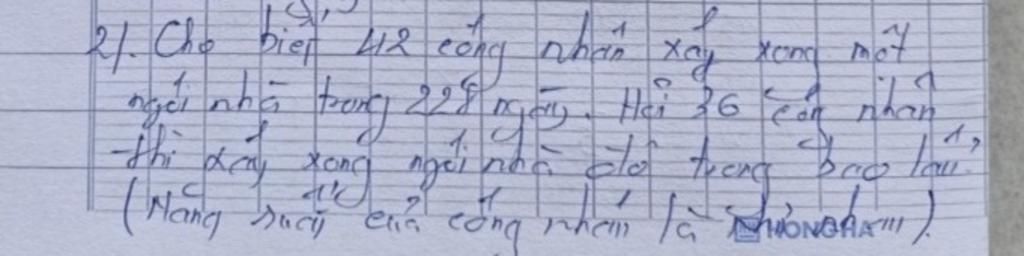 2). Cho biết 42 công nhân xây xong một
ngôi nhà trong 228 ngày. Hỏi 36 công nhân
thì xây xong ngôi nhà đó trong bao lâu?
(Năng suất của công nhân là